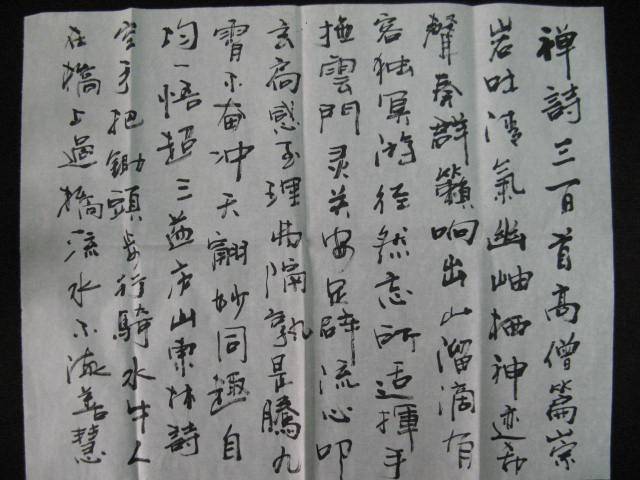 禅詩三百首高僧篇崇
岩吐清氣幽岫栖神迹希
聲奏群籟响出山溜滴有
客独冥游径然忘所适揮手
撫雲門灵关安足辟流心叩
玄扃感至理弗隔孰是騰九
霄不奋冲天翮妙同趣自
均一悟超三益庐山東林詩
空手把鋤頭步行騎水牛人
在橋上過橋流水不流善慧